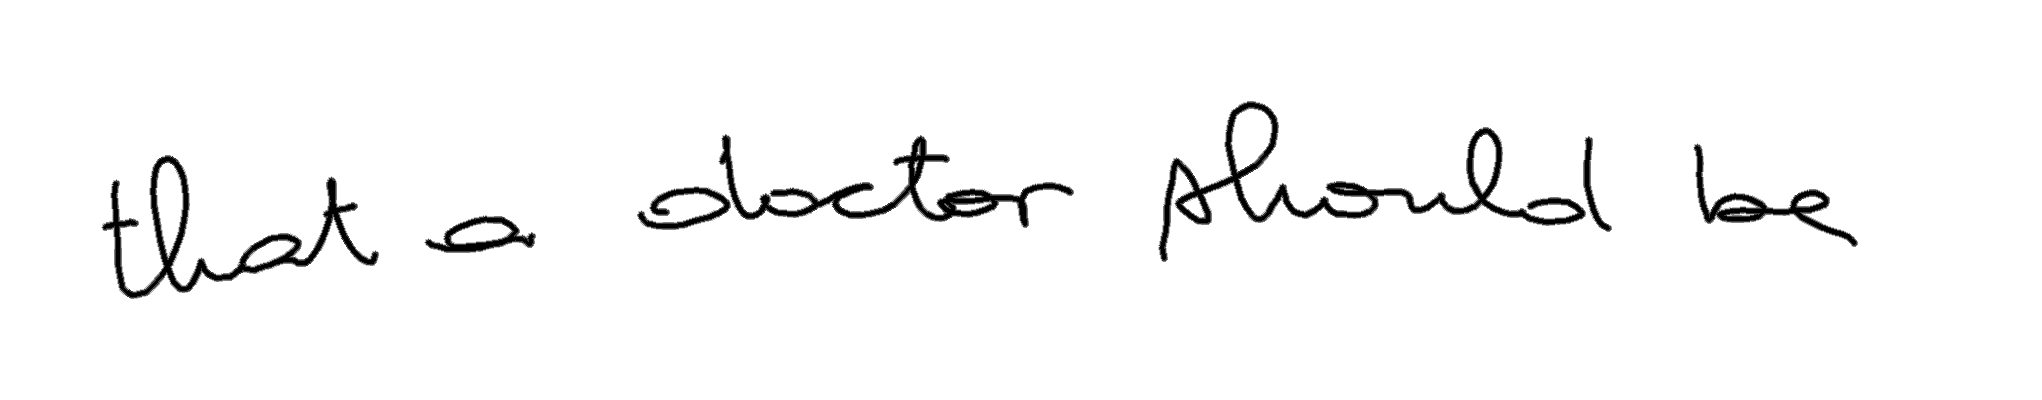 that a doctor should be